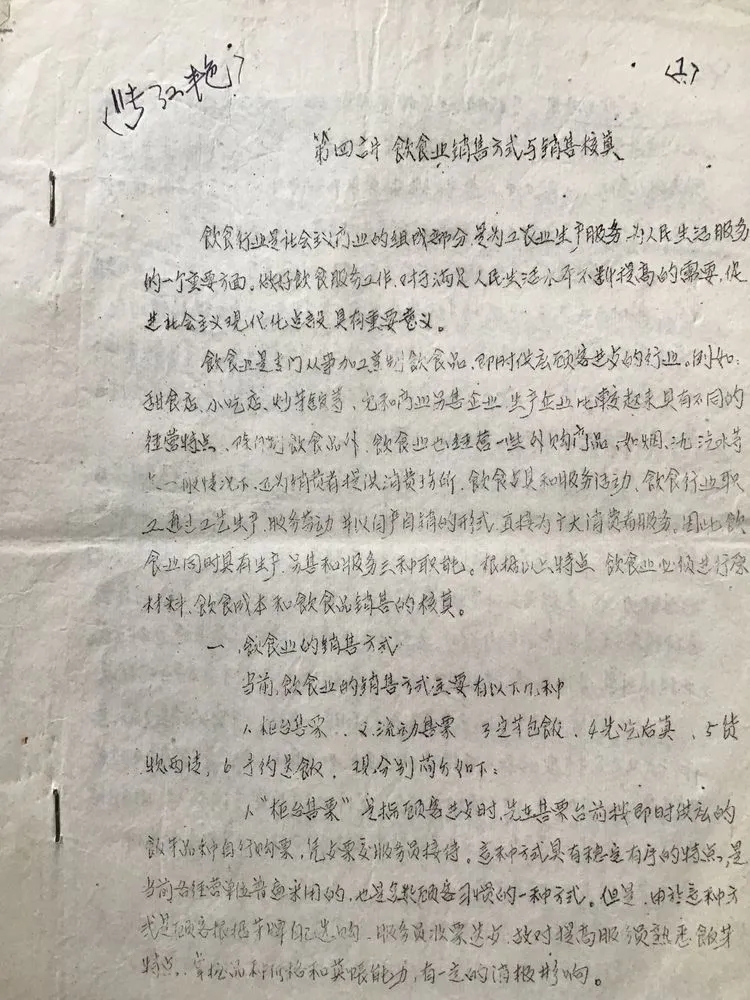 〈1〉
第四讲 飲食业销售方式与销售核算
飲食行业是社会主义商业的组成部分,是为工农业生产服务,为人民生活服务
的一个重要方面。做好飲食服务工作,对于满足人民生活水平不断提高的需要,促
进社会主义现代化建設具有重要意义。
飲食业是专门从事加工烹制飲食品,即时供应顾客进歺的行业。例如:
甜食店、小吃店、炒菜舘等,它和商业另售企业、生产企业比較起来具有不同的
经营特点,除自制飲食品外,飲食业也经营一些外购产品,如烟、汽水等
一般情况下,还为消费者提供消费场所,飲食歺具和服务活动,飲食行业职
工通过工艺生产,服务劳动并以自产自销的形式,直接为广大消费者服务。因此飲
食业同时具有生产、另售和服务三种职能。根据以上特点,飲食业必须进行原
材料、飲食成本和飲食品销售的核算。
一、飲食业的销售方式
当前,飲食业的销售方式主要有以下几种
1、柜台售票、2、流动售票 3定菜包飯、4先吃后算、5货
款两清,6予约送飯,现分别简介如下:
1、“柜台售票”是指顾客进歺时,先在售票台前按即时供应的
飯菜品种自行购票,凭歺票交服务员接待。这种方式具有穩定有序的特点,是
当前各经营单位普遍采用的,也是多数顾客习惯的一种方式。但是,由於这种方
式是顾客根据菜牌自己选购,服务员收票送歺,故对提高服务员熟悉飯菜
特点,掌握品种价格和算賬能力,有一定的消极影响。